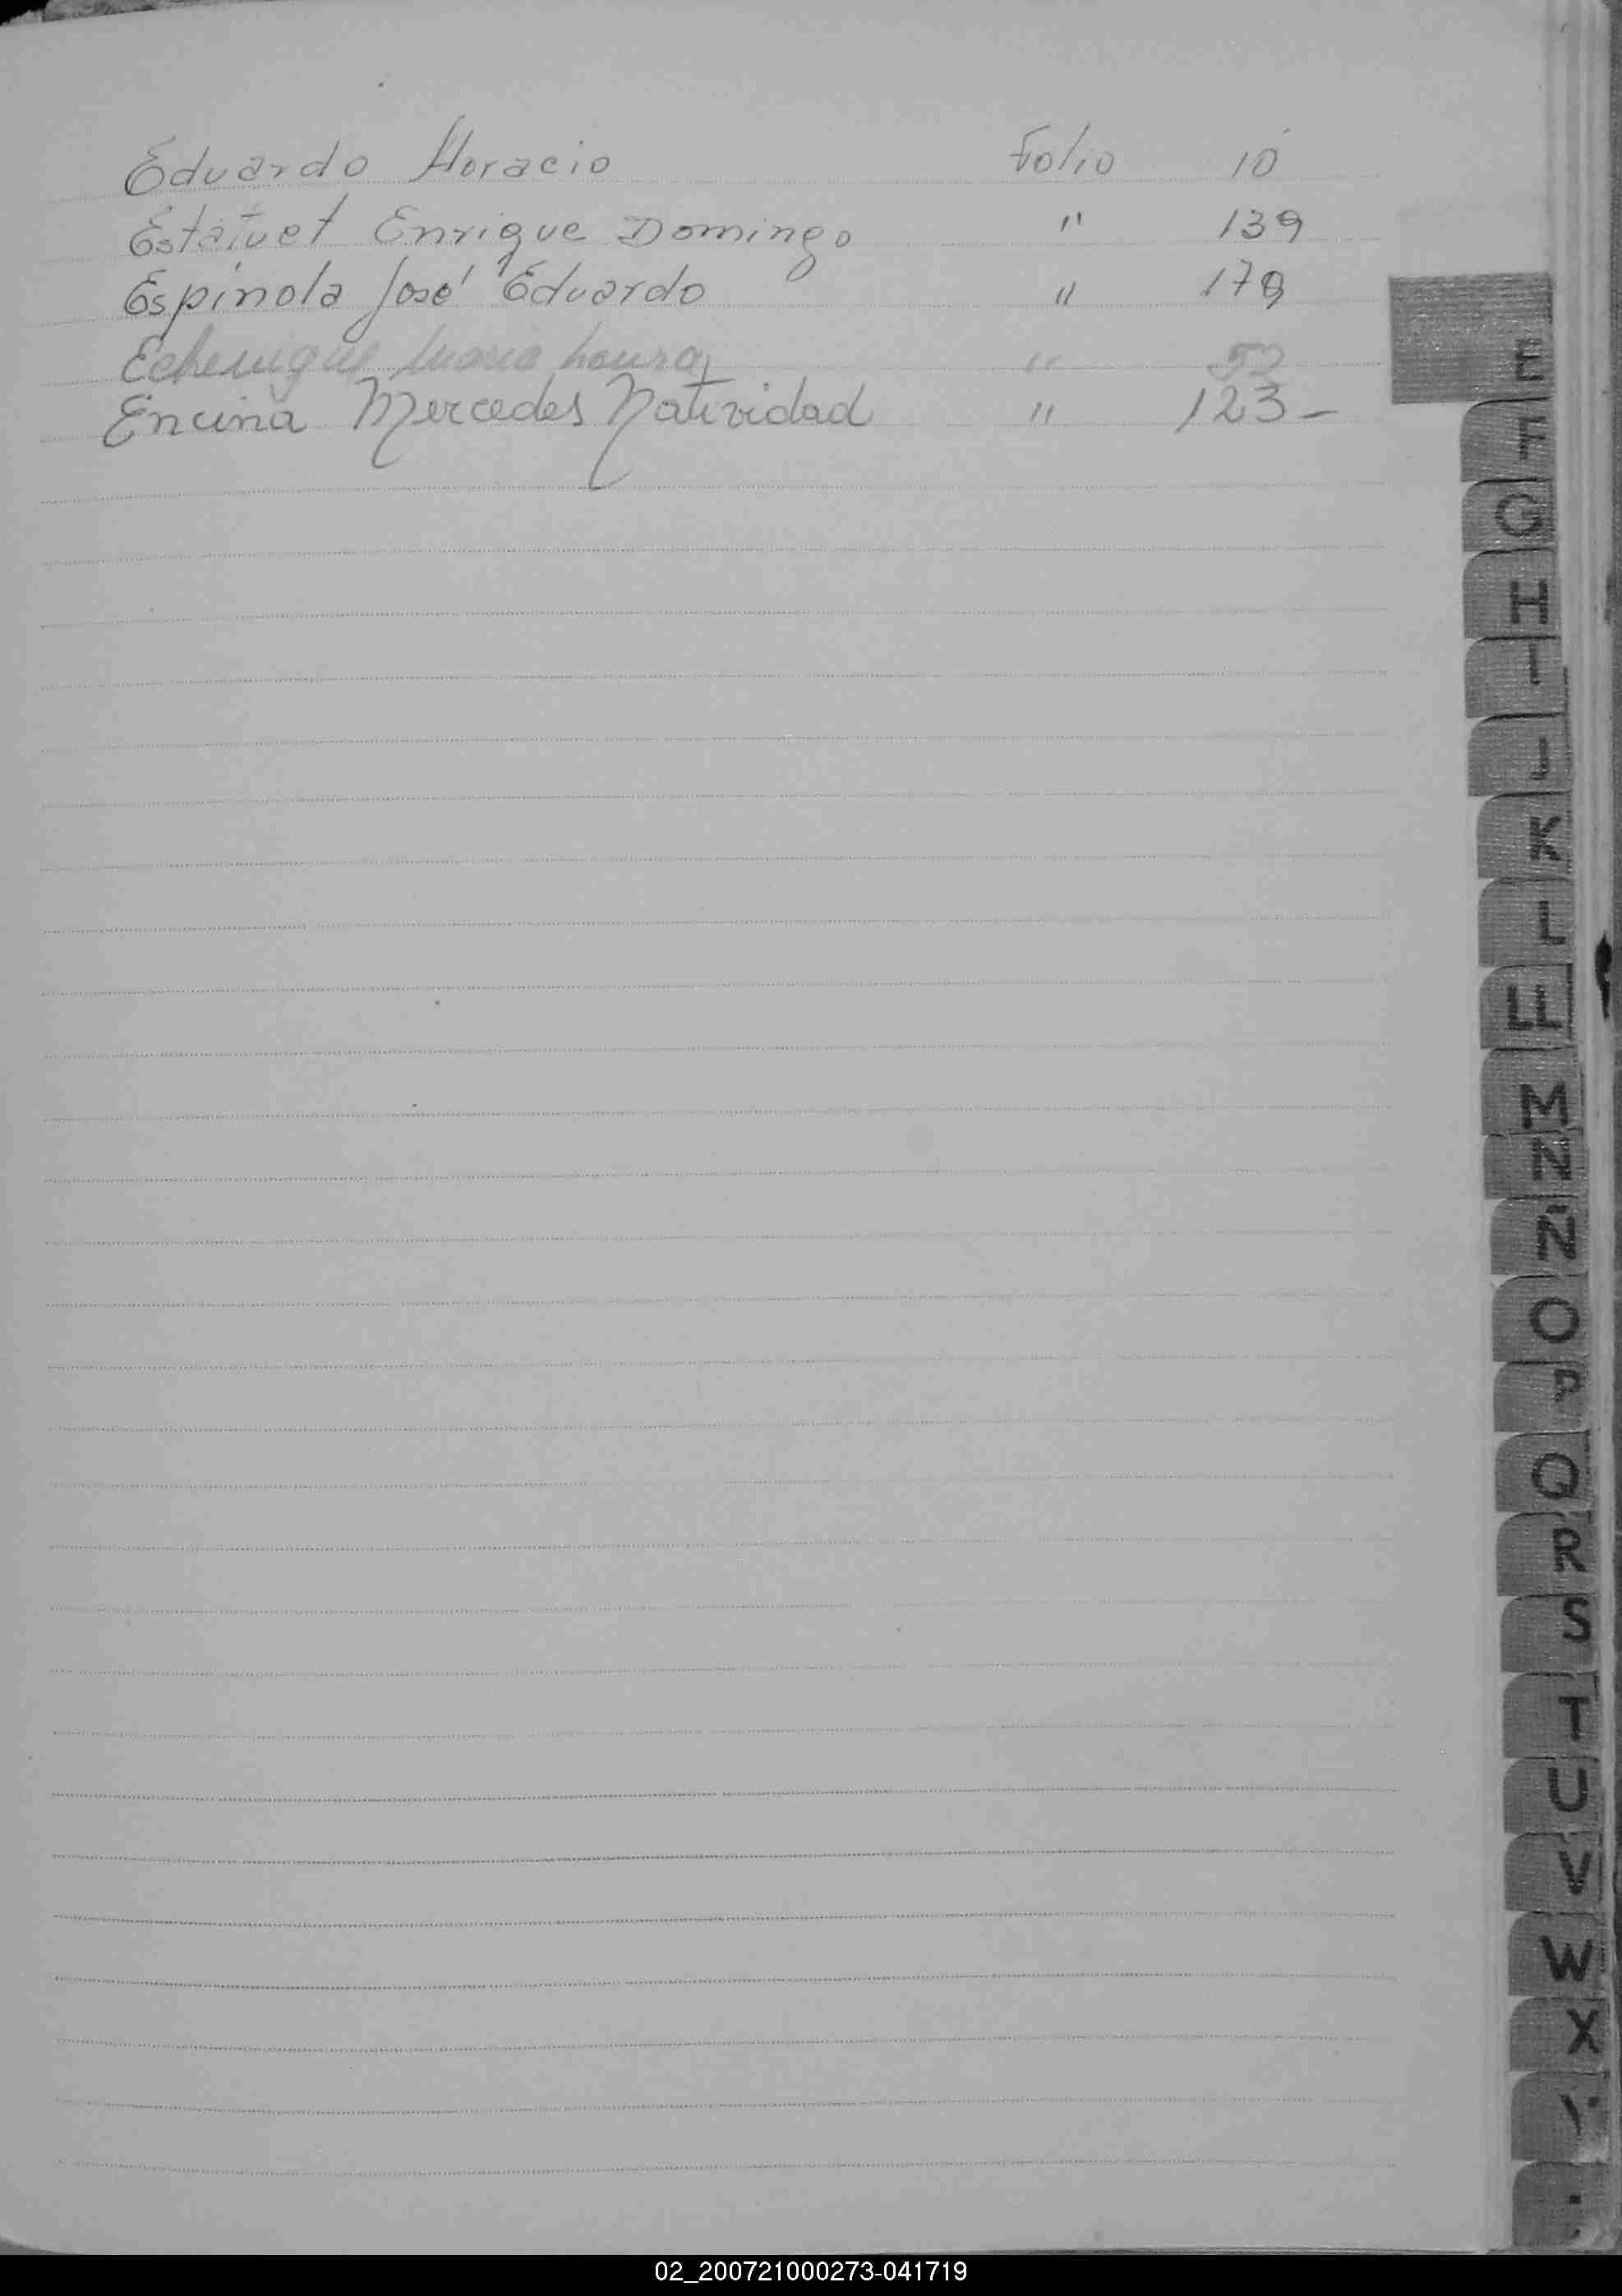 Eduardo Horacio Folio 10
Estatuet Enrique Domingo " 139
Espinola José Eduardo " 179
Echenique Maria Laura " 52
Encina Mercedes Natividad " 123-
E
F
G
H
I
J
K
L
LL
M
N
Ñ
O
P
Q
R
S
T
U
V
W
X
Y
02_200721000273-041719